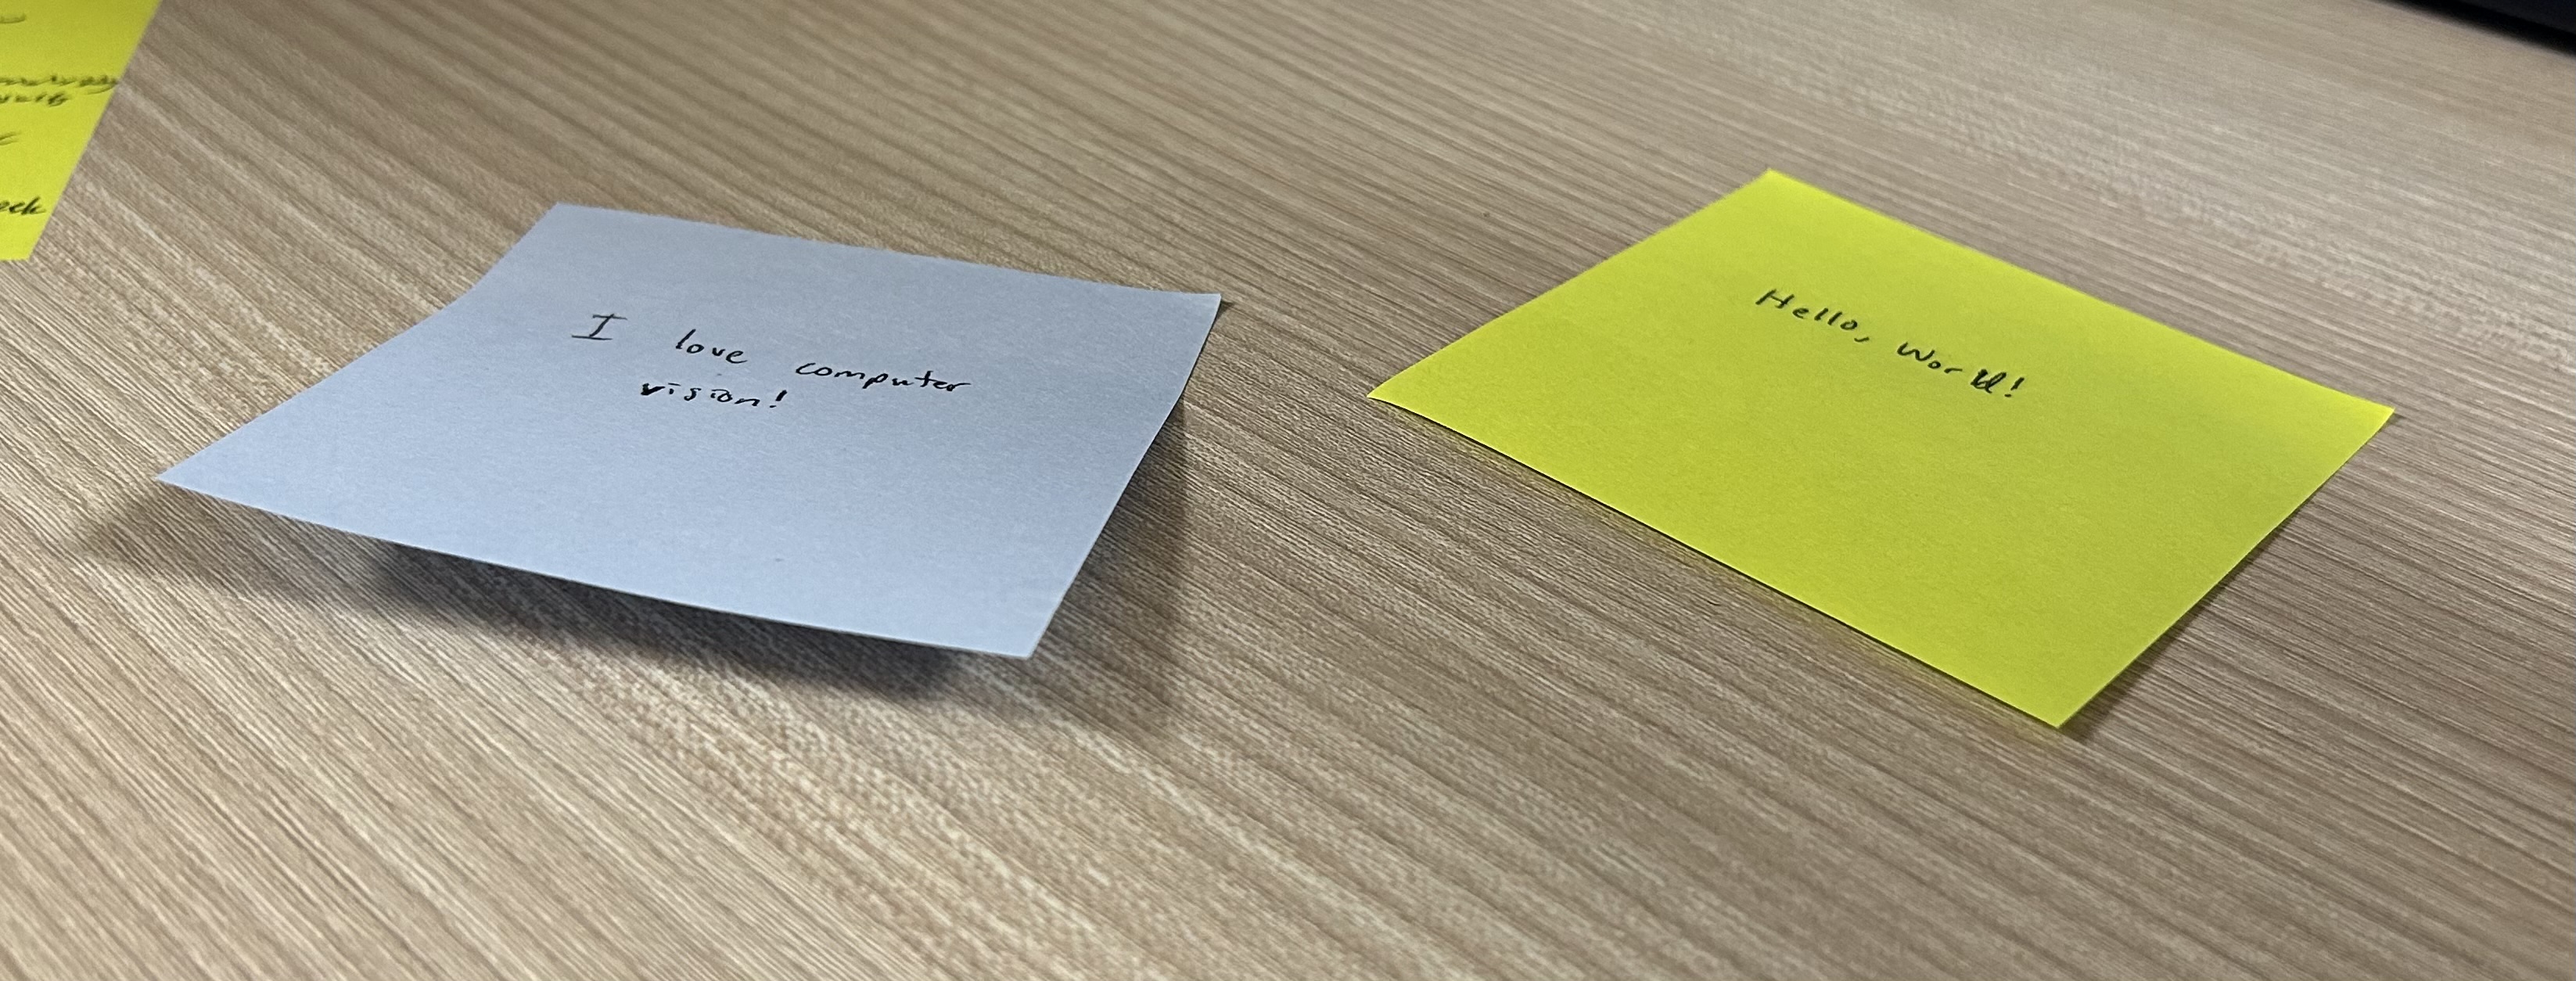 I love computer
vision!
Hello, World!